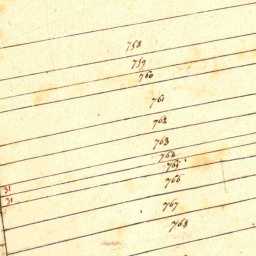 758
759
760
761
762
763
764
765
766
31
31
767
768